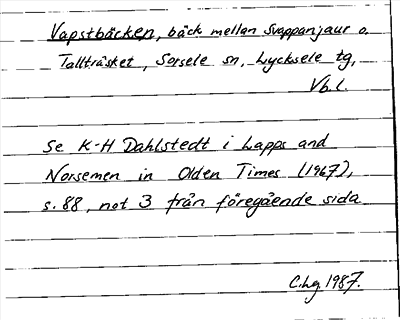 Vapstbäcken, bäck mellan Svappanjaur o.
Tallträsket, Sorsele sn, Lycksele tg,
Vb.l.
Se K-H Dahlstedt i Lapps and
Norsemen in Olden Times (1967),
s. 88, not 3 från föregående sida
C.Lg 1987.